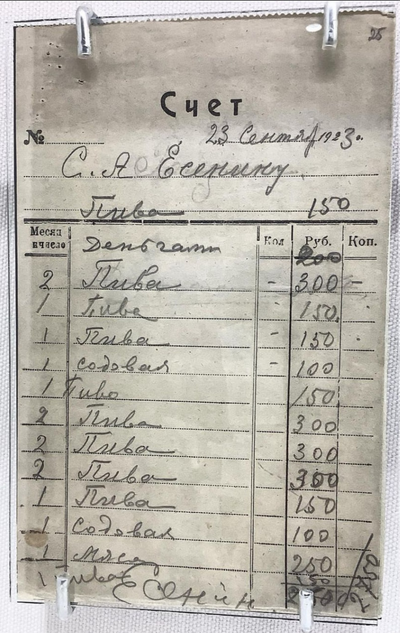 25
Счет
№ 23 Сентяб 1923 г.
С. А Есенину
Пива 150
Месяц и число Кол Руб. Коп.
Деньгами 200
2 Пива - 300 -
1 Пива - 150.
1 Пива - 150
1 содовая - 100
1 Пиво 150
2 Пива 300
2 Пива 300
2 Пива 300
1 Пива 150
1 Содовая 100
1 Мясо 250
1 пива 150
Есенин